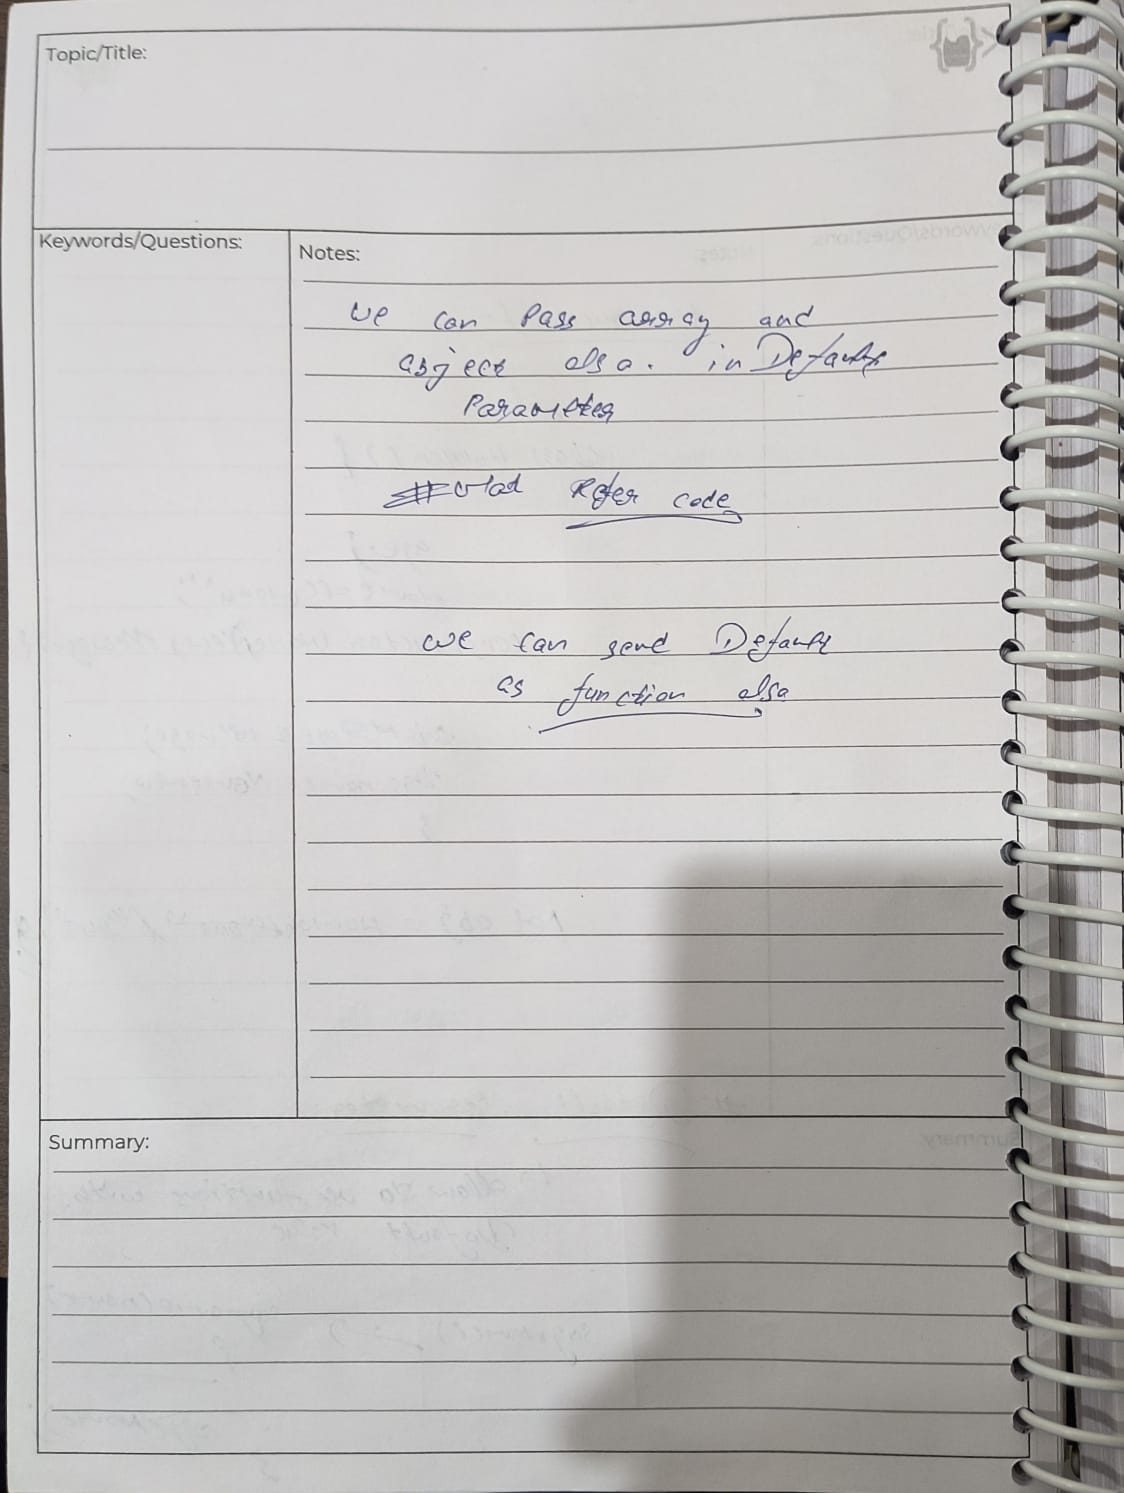 Topic/Title:
Keywords/Questions:
Notes:
we can Pass array and
object also. in Default
Parameter
Refer code
we can send Default
as function also
Summary: